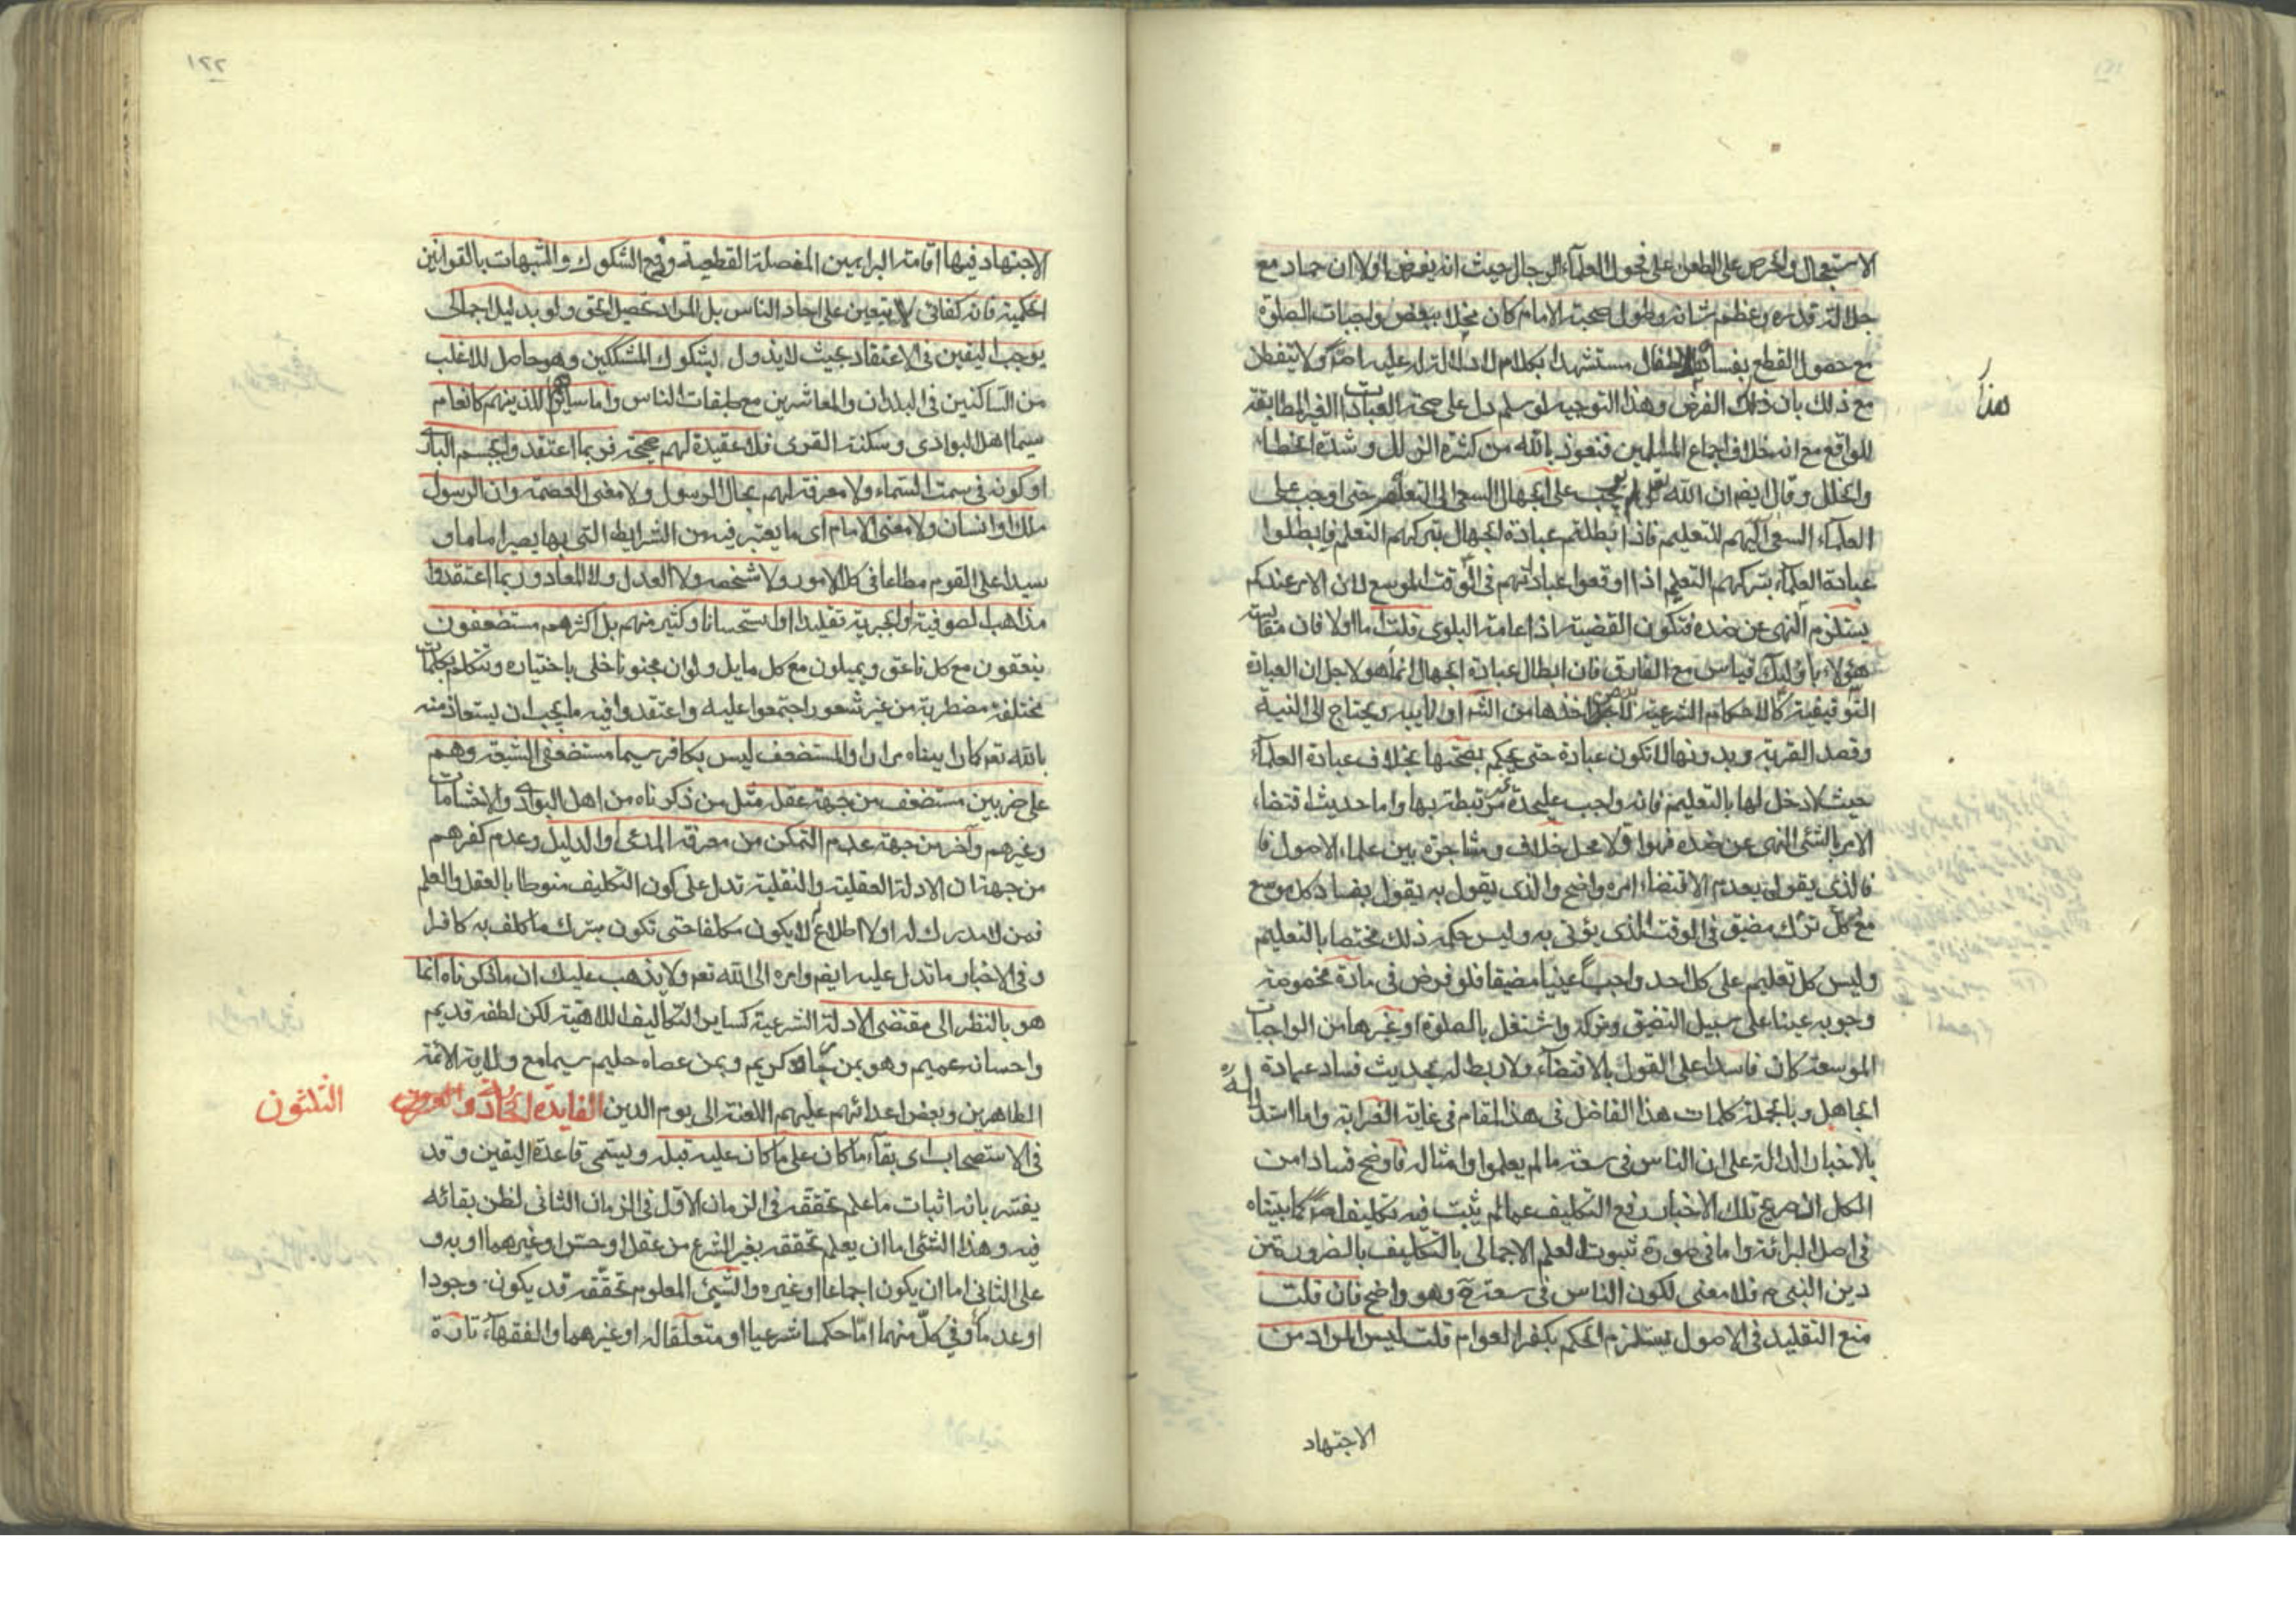 الاستعجال والحرص على الطعن على فحول العلماء الرجال حيث انه يفرض اولا ان حماد مع
جلالة قدره وعظم شانه وطول صحبته الامام كان مخلا ببعض واجبات الصلوة
مع حصول القطع بفساده مستشهدا بكلام لا دلالة له عليه اصلا ولا يتفطن
هذا
مع ذلك بان ذلك الفرض وهذا التوجيه لو سلم دل على صحة العبادات الغير المطابقة
للواقع مع انه خلاف اجماع المسلمين فنعوذ بالله من كثرة الزلل وشدة الخطاء
والخلل وقال ايضا ان الله لم يجب على الجهال السعى الى التعلم حتى اوجب على
العلماء السعى اليهم للتعليم فاذا ابطلتم عبادة الجهال بتركهم التعلم فابطلوا
عبادة العلماء بتركهم التعليم اذا اوقعوا عبادتهم فى الوقت الموسع لان الامر عندكم
يستلزم النهى عن ضده فتكون القضية اذا عامة البلوى قلت اما اولا فان مقايسة
هؤلاء باولئك قياس مع الفارق فان ابطال عبادة الجهال انما هو لاجل ان العبادة
التوقيفية كالاحكام الشرعية اخذها من الشرع او نايبه ويحتاج الى النية
وقصد القربة وبدونها لا تكون عبادة حتى يحكم بصحتها بخلاف عبادة العلماء
حيث لا دخل لها بالتعليم فانه واجب عليحدة غير مرتبطة بها واما حديث اقتضاء
الامر بالشئ النهى عن ضده فهو اولا محل خلاف ومشاجرة بين علماء الاصول فا
فالذى يقول بعدم الاقتضاء امره واضح والذى يقول به يقول بفساد كل موسع
مع كل ترك مضيق فى الوقت الذى يؤتى به وليس حكمه ذلك مختصا بالتعليم
وليس كل تعليم على كل احد واجبا عينيا مضيقا فلو فرض فى مادة مخصوصة
وجوبه عينا على سبيل التضيق وتركه واشتغل بالصلوة او غيرها من الواجبات
الموسعة كان فاسدا على القول بالاقتضاء ولا ربط له بحديث فساد عبادة
الجاهل وبالجملة كلمات هذا الفاضل فى هذا المقام فى غاية الغرابة واما استدلاله
بالاخبار الدالة على ان الناس فى سعة ما لم يعلموا وامثاله فاوضح فسادا من
الكل اذ صريح تلك الاخبار رفع التكليف عما لم يثبت فيه تكليف اصلا كما بيناه
فى اصل البرائة واما فى صورة ثبوت العلم الاجمالى بالتكليف بالضرورة من
دين النبى ص فلا معنى لكون الناس فى سعة ح وهو واضح فان قلت
منع التقليد فى الاصول يستلزم الحكم بكفر العوام قلت ليس المراد من
الاجتهاد
١٢٢
الاجتهاد فيها اقامة البراهين المفصلة القطعية ودفع الشكوك والشبهات بالقوانين
الحكمية فانه كفائى لا يتعين على احاد الناس بل المراد تحصيل الحق ولو بدليل اجمالى
يوجب اليقين فى الاعتقاد بحيث لا يزول بشكوك المشككين وهو حاصل للاغلب
من الساكنين فى البلدان والمعاشرين مع طبقات الناس واما سايرهم الذين هم كانعام
سيما اهل البوادى وسكنة القرى فلا عقيدة لهم صحيحة فربما اعتقدوا تجسم البارى
او كونه فى سمت السماء ولا معرفة لهم بحال الرسول ولا معنى العصمة وان الرسول
ملك او انسان ولا معنى الامام اى ما يعتبر فيه من الشرايط التى بها يصير اماما و
سيدا على القوم مطاعا فى كل الامور ولا شخصه ولا العدل ولا المعاد وربما اعتقدوا
مذاهب الصوفية او الجبرية تقليدا او استحسانا وكثير منهم بل اكثرهم مستضعفون
ينعقون مع كل ناعق ويميلون مع كل مايل ولو ان مجنونا خلى باختياره وتكلم بكلمات
مختلفة مضطربة من غير شعور اجتمعوا عليه واعتقدوا فيه ما يجب ان يستعاذ منه
بالله تعم كما راينا مرارا والمستضعف ليس بكافر سيما مستضعفى الشيعة وهم
على ضربين مستضعف من جهة عقله مثل من ذكرناه من اهل البوادى والاحشامات
وغيرهم وآخر من جهة عدم التمكن من معرفة المدعى والدليل وعدم كفرهم
من جهة ان الادلة العقلية والنقلية تدل على كون التكليف منوطا بالعقل والعلم
فمن لا مدرك له او لا اطلاع لا يكون مكلفا حتى تكون بترك ما كلف به كافرا
وفى الاخبار ما تدل عليه ايضا وامره الى الله تعم ولا يذهب عليك ان ما ذكرناه انما
هو بالنظر الى مقتضى الادلة الشرعية كساير التكاليف اللاهية لكن لطفه قديم
واحسانه عميم وهو بمن رجاه كريم وبمن عصاه حليم سيما مع ولاية الائمة
الطاهرين وبغض اعدائهم عليهم اللعنة الى يوم الدين الفايدة الحادية و
الثلثون
فى الاستصحاب اى بقاء ما كان على ما كان عليه قبله ويسمى قاعدة اليقين وقد
يفسر بانه اثبات ما علم تحققه فى الزمان الاول فى الزمان الثانى لظن بقائه
فيه وهذا الشئ اما ان يعلم تحققه بغير الشرع من عقل او حس او غيرهما او به و
على الثانى اما ان يكون اجماعا او غيره والشئ المعلوم تحققه قد يكون وجودا
او عدما وفى كل منهما اما حكما شرعيا او متعلقا له او غيرهما والفقهاء تارة